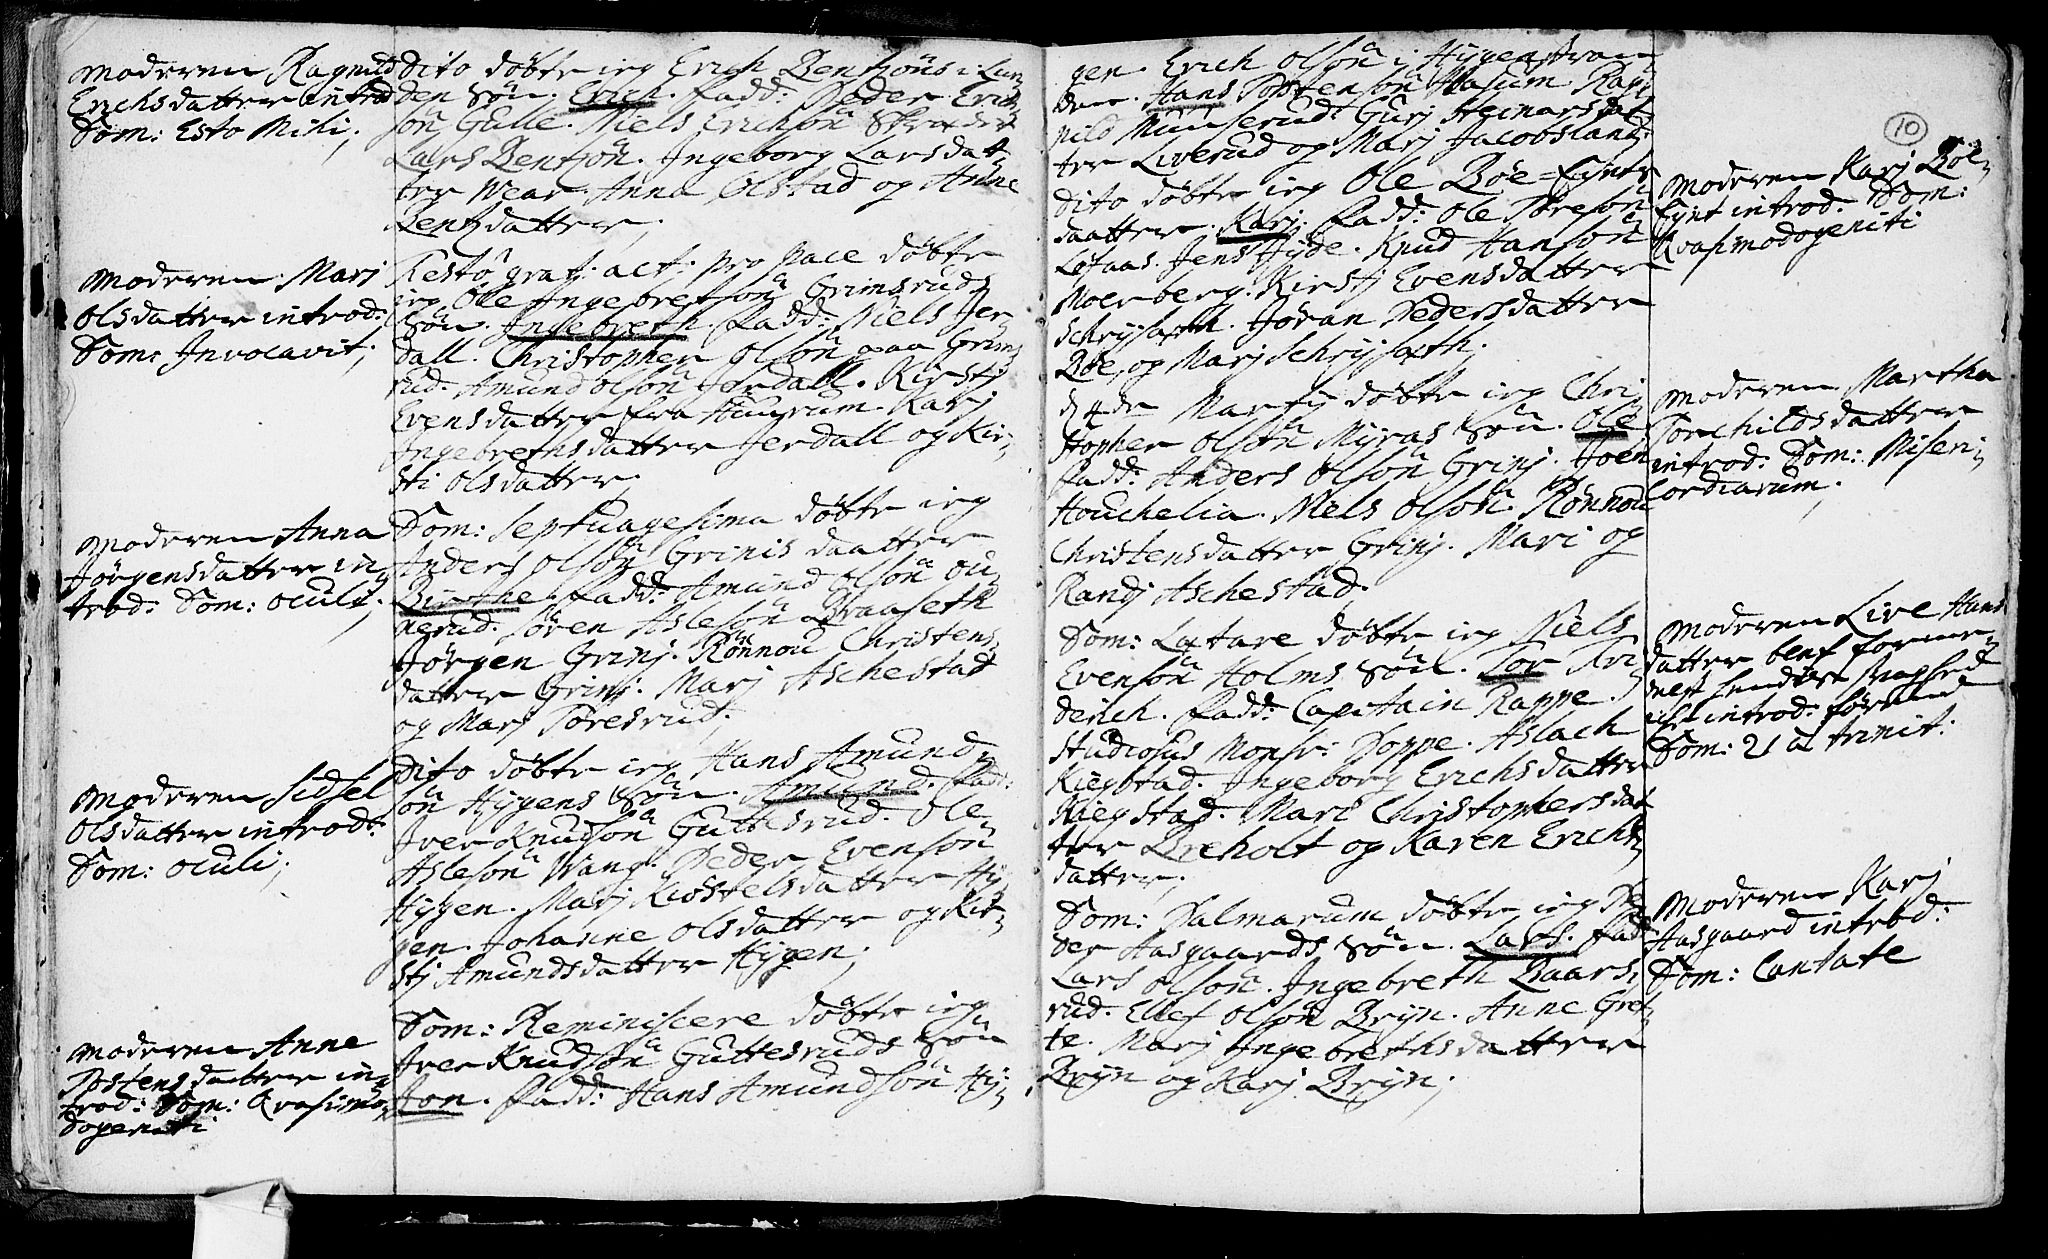 Moderen Ragnild
Erichsdatter introd
Dom: Esto Mihi;
Moderen Marj
Olsdatter introd:
Dom: Invocavit;
Moderen Anna
Jørgensdatter in
trod: Dom: oculi;
Moderen Sidsel
Olsdatter introd:
Dom: oculi;
Moderen Anne
Tostensdatter in
trod: Dom: Qvasimo
dogeniti
Dito døbte ieg Erich Bentsöns i Lun
den Sön. Erich. Fadd: Peder Erich
sön Gulle. Niels Erichsön Skreder
Lars Bentsön. Ingeborg Larsdat
ter Wear. Anna Olstad og Anne
Bentzdatter;
Festo grat: act: pro pace døbte
ieg Ole Ingebretsöns Grimsruds
Sön. Ingebreth. Fadd: Niels Jer
dall. Christopher Olsön paa Grims
rud. Amund Olsön Jerdall. Kirstj
Evensdatter fra Huusum. Karj
Ingebrethsdatter Jerdall og Kir
sti Olsdatter;
Dom: Septuagesima døbte ieg
Anders Olsön Grinis daatter
Birthe. Fadd: Amund Olsön Ou
nerud. Sören Aslesön Braaseth
Jörgen Grinj. Rönnou Christens
datter Grinj. Marj Aschestad
og Marj Toresrud;
Dito døbte ieg Hans Amund
sön Hÿgens Sön. Amund. Fadd:
Iver Knudsön Guttesrud. Ole
Aslesön Wang. Peder Evensön
Hÿgen. Marj Kiostelsdatter Hÿ
gen. Johanne Olsdatter og Kir
stj Amundsdatter Hÿgen;
Dom: Reminiscere døbte ieg
Iver Knudsön Guttesruds Sön
Jon. Fadd: Hans Amundsön Hÿ
gen. Erich Olsön i Hÿgenstran
den. Hans Tostensön Huusum. Rag
nild Munserud. Gurj Steinarsdat
ter Liverud og Marj Jacobsland;
Dito døbte ieg Ole Böe-Eÿnts
daatter. Karj. Fadd: Ole Toresön
Lofaas. Jens Hÿde. Knud Hansön
Moerberg. Kirstj Evensdatter
Schrÿseth. Jøran Pedersdatter
Böe, og Marj Schrÿseth;
d 4de Martÿ döbte ieg Chri
stopher Olsön Mÿras Sön. Ole
Fadd: Anders Olsön Grinj. Joen
Houchelia. Niels Olsön. Rönnou
Christensdatter Grinj. Mari og
Randj Aschestad;
Dom: Lætare døbte ieg Niels
Evensön Holms Sön. Tor Fri
derich. Fadd: Capitain Rappe.
Studiosus Monsr: Poppe. Aslach
Kiegstad. Ingeborg Erichsdatter
Kiegstad. Mari Christophersdat
ter Breholt og Karen Erichs
datter;
Dom: Palmarum døbte ieg Pe
der Aasgaards Sön. Lars. Fadd
Lars Olsön. Ingebreth Baars
rud. Ellef Olsön Brÿn. Anne Gret
te. Marj Ingebrethsdatter
Brÿn og Karj Brÿn;
10
Moderen Karj Böe
Eÿnt introd. Dom:
Qvasimodogeniti
Moderen Martha
Torchildsdatter
introd: Dom: Miseri
cordiarum;
Moderen Live Hans
datter
introd: førend
Dom: 21 a trinit:
Moderen Karj
Aasgaard introd:
Dom: Cantate